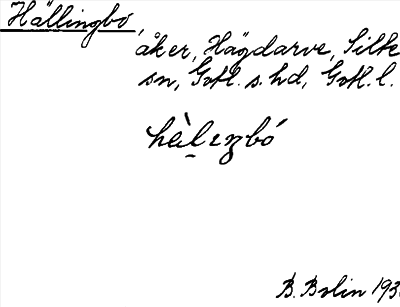 Hällingbo,
åker, Hägdarve, Silte
sn, Gotl. s. hd, Gotl. l.
hàlıŋbó
B. Bolin 193